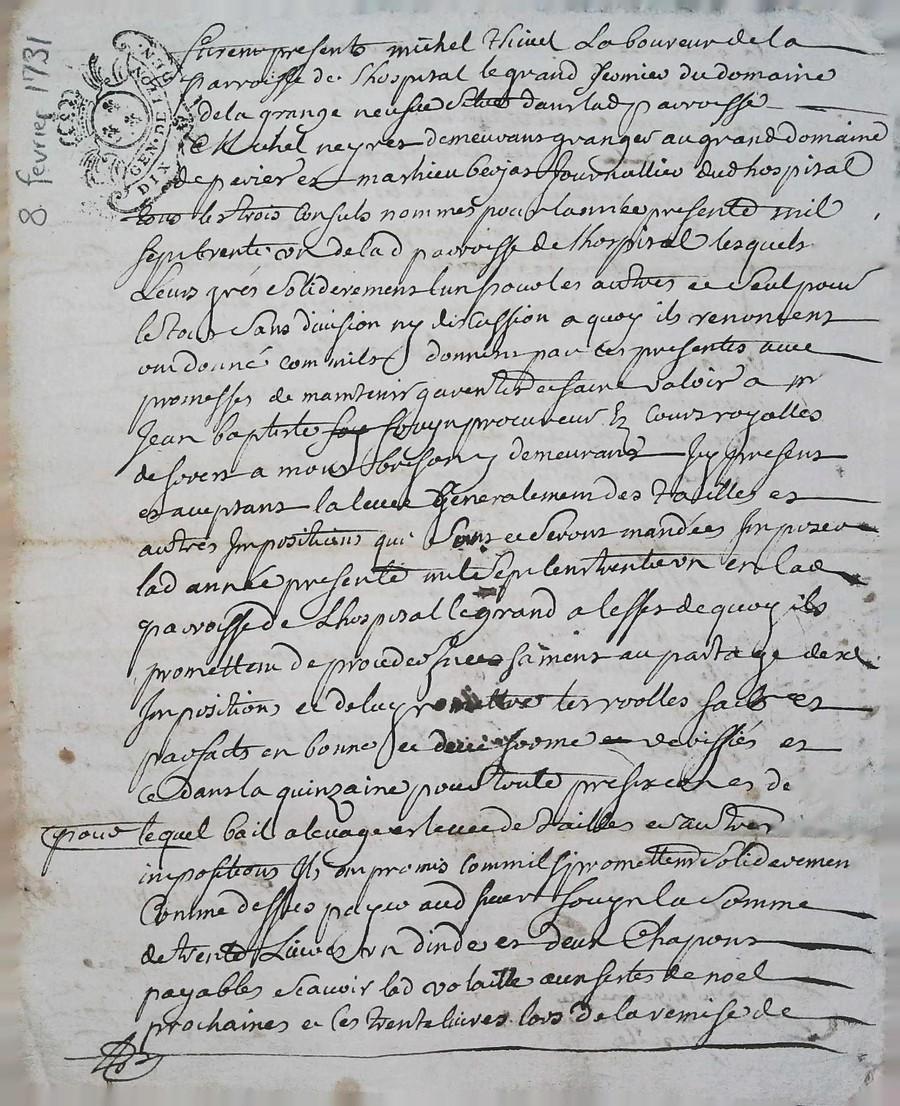 8 fevrier 1731
GEN. DE
DIX
furent presents michel thivel Laboureur de la
parroisse de Lhospital le grand fermier du domaine
de la grange neufve situé dans lad parroisse
et Michel neyret demeurant granger au grand domaine
de et mathieu journallier dud hospital
tous les trois consuls nommes pour lannée presente mil
sept trente un de lad parroisse de lhospital lesquels
Leurs grés soliderement lun pour les autres et seul pour
le tout sans division ny discussion a quoy ils renoncent
ont donné comm ils donnent par ces presentes avec
promesses de maintenir garentir et faire valoir a mr
Jean baptiste procureur Ez cours royalles
de forest a montbrison y demeurant Jcy present
et aceptant la levee Generalement des tailles et
autres Jmpositions qui sont et seront mandées Jmposer
lad année presente mil sept cent trente un en lad
parroisse de Lhospital le grand a leffet de quoy ils
promettent de proceder au partage desd
Jmpositions et de luy remettre les roolles faits et
parfaits en bonne et deue forme et veriffiés et
ce dans la quinzaine pour toute prefixe et de
pour lequel bail a levage et levee de tailles et autres
impositions Ils ont promis comm ils promettent soliderement
Comme dessus payer aud sieur la somme
de trente Livres un dinde et deux Chapons
payables scavoir lad volaille aux festes de noel
prochaines et les trente livres lors de la remise de